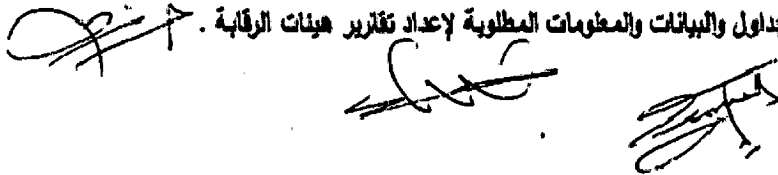 بداول والبيانات والمعلومات المطلوبة لإعداد تقارير هيئات الرقابة .